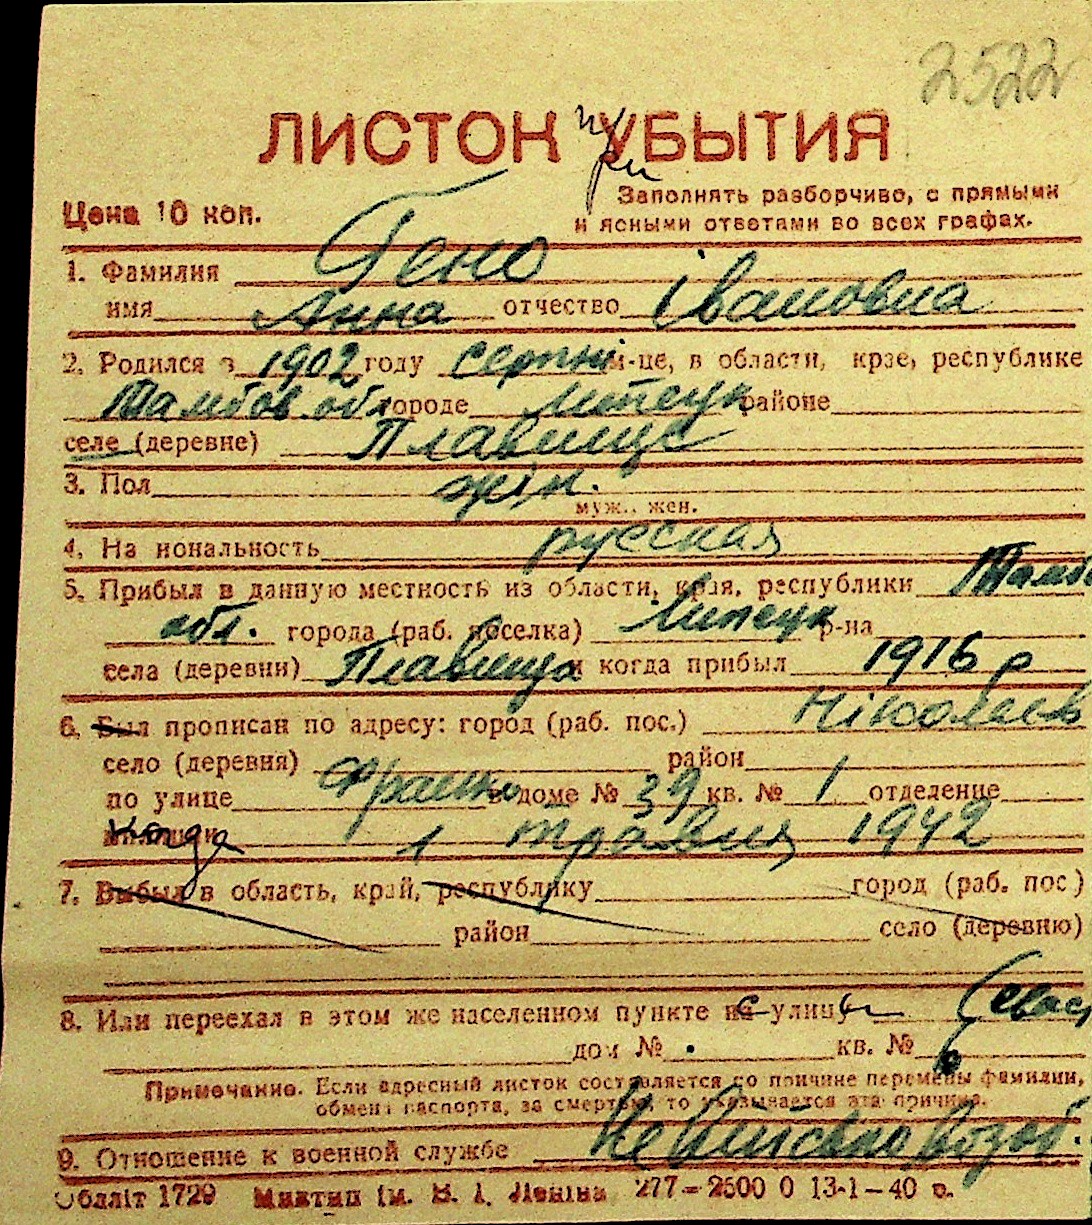 2522
ЛИСТОК при УБЫТИЯ
Цена 10 коп.
Заполнять разборчиво, с прямыми
и ясными ответами во всех графах.
1. Фамилия Гено
имя Анна отчество Івановна
2. Родился в 1902 году серпні м-це, в области, крае, республике
Тамбов. обл городе Липецк районе
селе (деревне) Плавица
3. Пол жін.
муж., жен.
4. На иональность русская
5. Прибыл в данную местность из области, края, республики Тамб
обл. города (раб. поселка) Липецк р-на
села (деревни) Плавица и когда прибыл 1916 р
6. Был прописан по адресу: город (раб. пос.) Ніколаев
село (деревня) район
по улице Франко в доме № 39 кв. № 1 отделение
когда 1 травня 1942
7. Выбыл в область, край, республику город (раб. пос)
район село (деревню)
8. Или переехал в этом же населенном пункте с улицы Севас
дом № кв. №
Примечание. Если адресный листок составляется по причине перемены фамилии,
обмена паспорта, за смертью, то указывается эта причина.
9. Отношение к военной службе Не
Обллiт 1729 Миктип iм. В. І. Ленiна 277—2500 0 13-1—40 в.